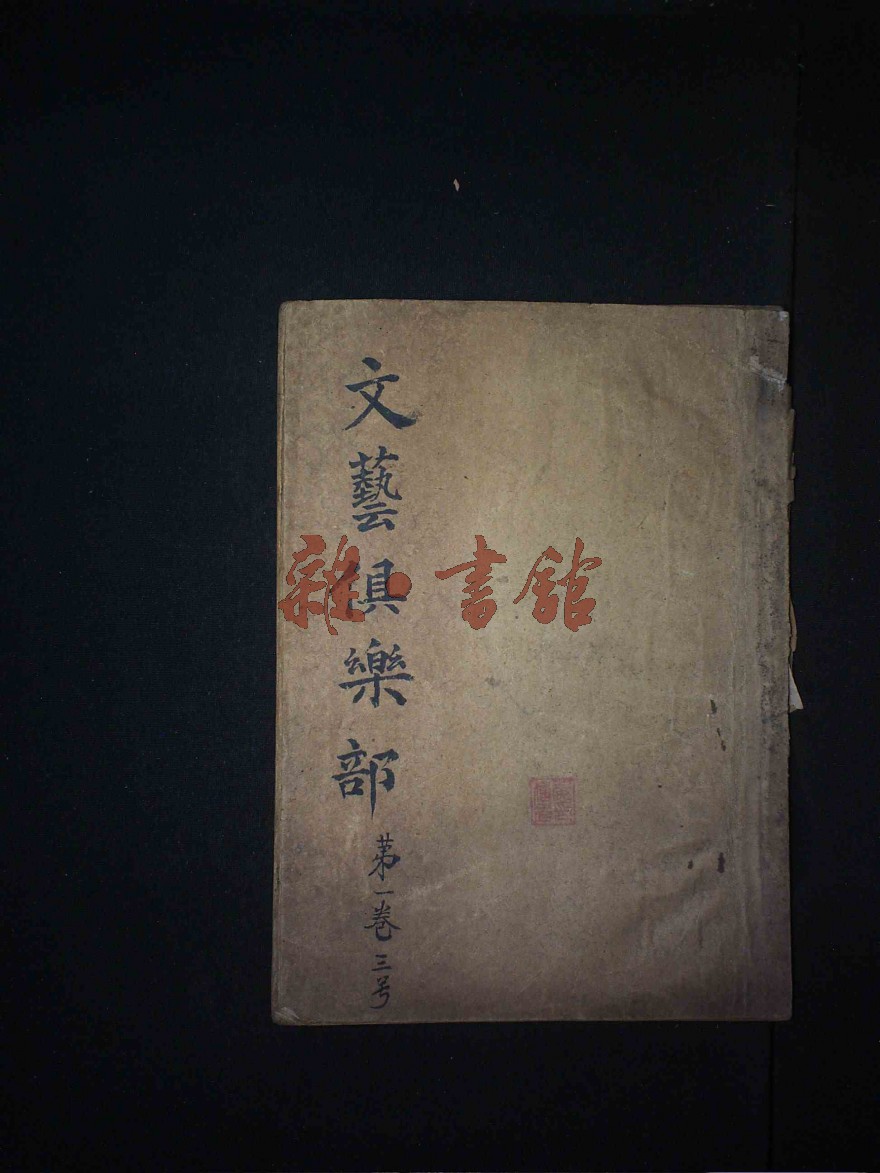 文藝俱樂部
第一卷三号
雜·書館